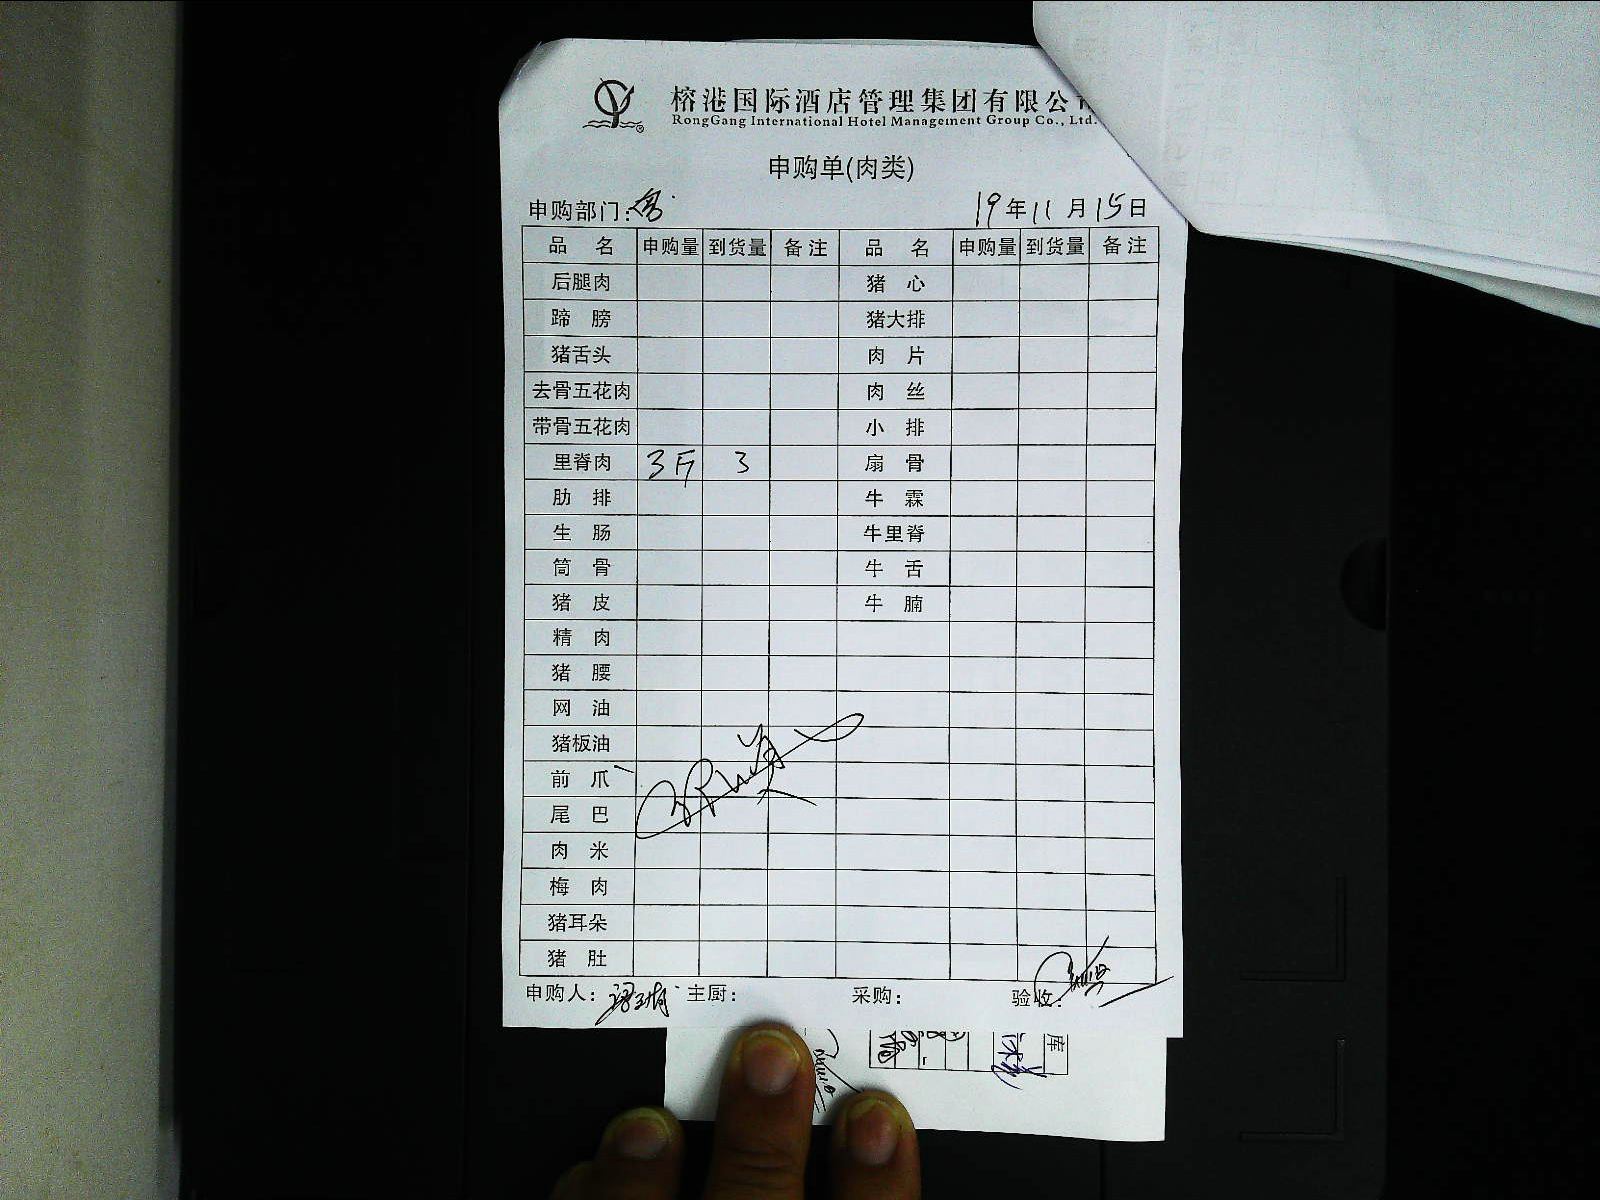 榕港国际酒店管理集团有限公司
RongGang International Hotel Management Group Co., Ltd.
申购单(肉类)
申购部门: 19年11月15日
品 名 申购量 到货量 备注 品 名 申购量 到货量 备注
后腿肉 猪 心
蹄 膀 猪大排
猪舌头 肉 片
去骨五花肉 肉 丝
带骨五花肉 小 排
里脊肉 3斤 3 扇 骨
肋 排 牛 霖
生 肠 牛里脊
筒 骨 牛 舌
猪 皮 牛 腩
精 肉
猪 腰
网 油
猪板油
前 爪
尾 巴
肉 米
梅 肉
猪耳朵
猪 肚
申购人: 主厨: 采购: 验收:
库